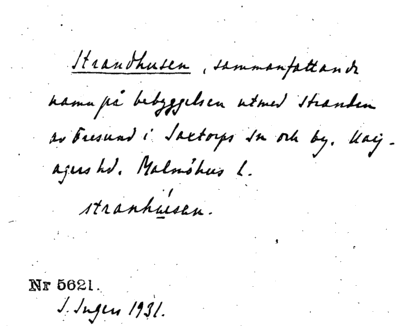 Strandhusen, sammanfattande
namn på bebyggelsen utmed stranden
av Öresund i Saxtorps sn och by. Harj-
agers hd. Malmöhus l.
stranhúsen.
Nr 5621.
I. Ingers 1931.